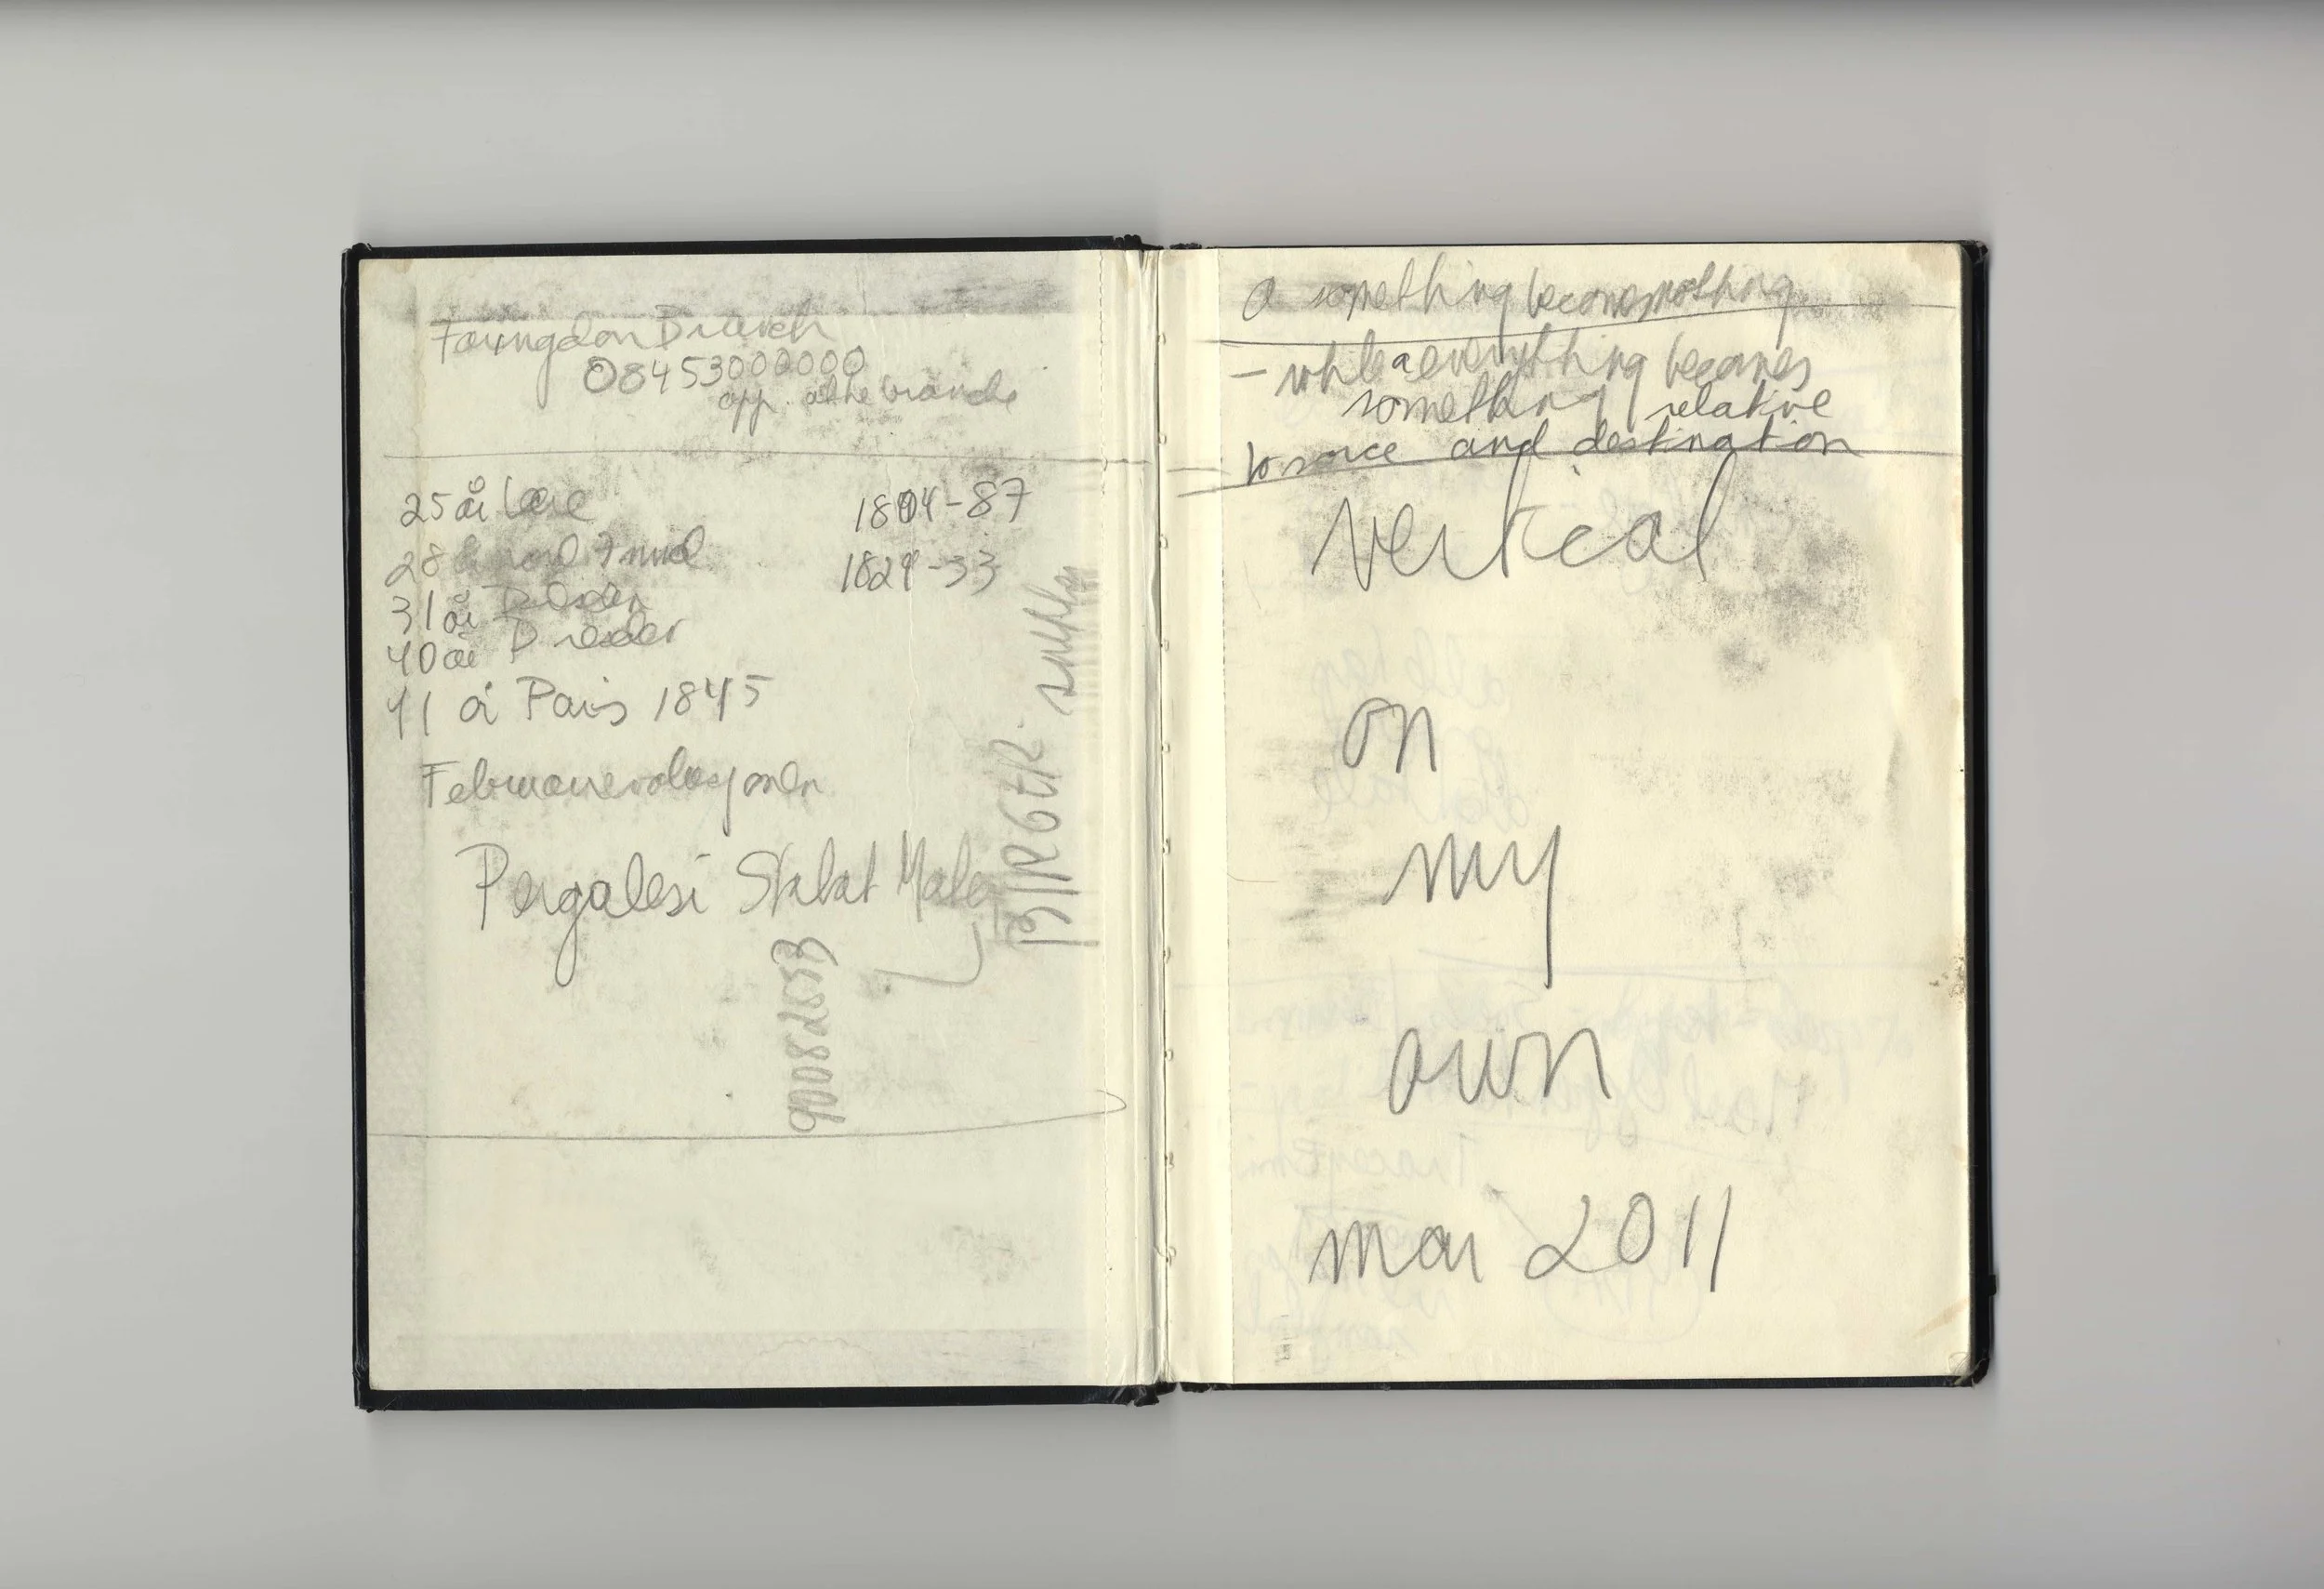 08453000000
opp. at the branch
25 år
1804-87
28
1829-33
31 år
40 år Dresden
41 år Paris 1845
Februarrevolusjonen
Pergolesi Stabat Mater
BIRGER
90082653
a something becomes nothing
- while a everything becomes
something relative
to source and destination
vertical
on
my
own
mai 2011